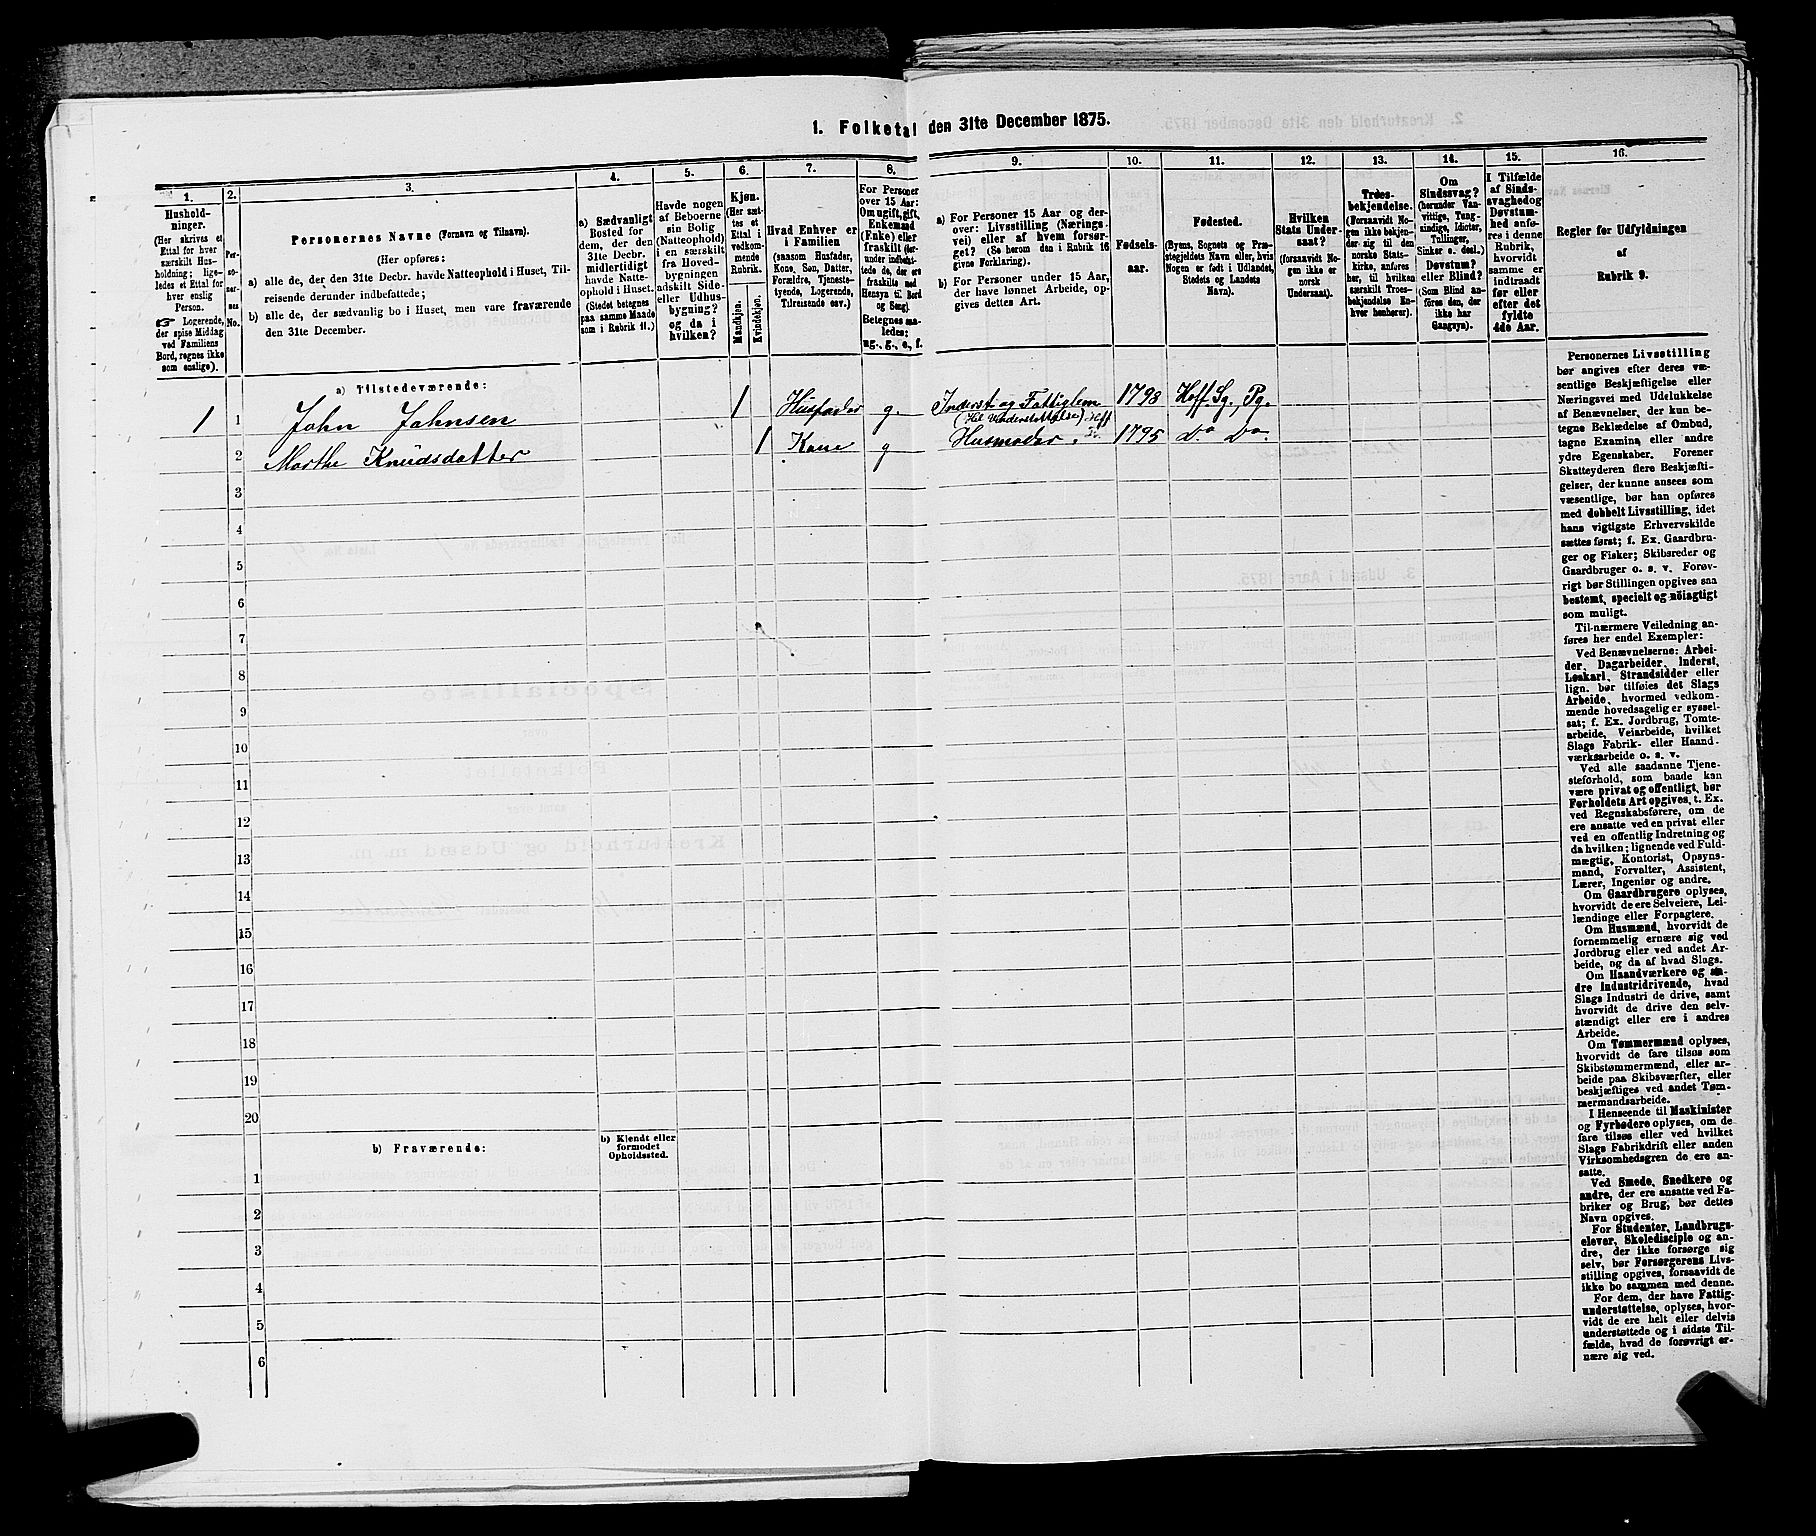 1. Folketal den 31te December 1875.
1.
Hushold-
ninger.
(Her skrives et
Ettal for hver
særskilt Hus-
holdning; lige-
ledes et Ettal for
hver enslig
Person.
Logerende,
der spise Middag
ved Familiens
Bord, regnes ikke
som enslige).
2.
Per-
so-
ner-
nes
No.
3.
Personernes Navne (Fornavn og Tilnavn).
(Her opføres:
a) alle de, der den 31te Decbr. havde Natteophold i Huset, Til-
reisende derunder indbefattede;
b) alle de, der sædvanlig bo i Huset, men vare fraværende
den 31te December.
4.
a) Sædvanligt
Bosted for
dem, der den
31te Decbr.
midlertidigt
havde Natte-
ophold i Huset.
(Stedet betegnes
paa samme Maade
som i Rubrik 11.)
5.
Havde nogen
af Beboerne
sin Bolig
(Natteophold)
i en særskilt
fra Hoved-
bygningen
adskilt Side-
eller Udhus-
bygning?
og da i
hvilken?
6.
Kjøn.
(Her sæt-
tes et
Ettal i
vedkom-
mende
Rubrik.
Mandkjøn.
Kvindekjøn.
7.
Hvad Enhver er
i Familien
(saasom Husfader,
Kone, Søn, Datter,
Forældre, Tjeneste-
tyende, Logerende,
Tilreisende osv.)
8.
For Personer
over 15 Aar:
Om ugift, gift,
Enkemand
(Enke) eller
fraskilt (der-
under indbefat-
tede de, der ere
fraskilte med
Hensyn til Bord
og Seng).
Betegnes saa-
ledes:
ug., g., e., f.
9.
a) For Personer 15 Aar og der-
over: Livsstilling (Nærings-
vei) eller af hvem forsør-
get? (Se herom den i Rubrik 16
givne Forklaring).
b) For Personer under 15 Aar,
der have lønnet Arbeide, op-
gives dettes Art.
10.
Fødsels-
aar.
11.
Fødested.
(Byens, Sognets og Præ-
stegjeldets Navn eller, hvis
Nogen er født i Udlandet,
Stedets og Landets
Navn).
12.
Hvilken
Stats Under-
saat?
(forsaavidt No-
gen ikke er
norsk
Undersaat).
13.
Troes-
bekjendelse.
(Forsaavidt No-
gen ikke bekjen-
der sig til den
norske Stats-
kirke, anføres
her, til hvilken
særskilt Troes-
bekjendelse En-
hver henhører).
14.
Om
Sindssvag?
(herunder Van-
vittige, Tung-
sindige, Idioter,
Tullinger,
Sinker o. desl.)
Døvstum?
eller Blind?
(Som Blind an-
føres den, der
ikke har
Gangsyn).
15.
I Tilfælde
af Sinds-
svaghed og
Døvstum-
hed anfø-
res i denne
Rubrik,
hvorvidt
samme er
indtraadt
før eller
efter det
fyldte
4de Aar.
16.
Regler for Udfyldningen
af
Rubrik 9.
a) Tilstedeværende:
1 1 John Johnsen 1 Husfader g. Inderst og Fattiglem 1798 Hoff Sg., Pg.
(Hel Understøttelse) Hoff
2 Marthe Knudsdatter 1 Kone g Husmoder 1795 do do
3
4
5
6
7
8
9
10
11
12
13
14
15
16
17
18
19
20
b) Fraværende:
b) Kjendt eller
formodet
Opholdssted.
1
2
3
4
5
6
Personernes Livsstilling
bør angives efter deres væ-
sentlige Beskjæftigelse eller
Næringsvei med Udelukkelse
af Benævnelser, der kun be-
tegne Beklædelse af Ombud,
tagne Examina eller andre
ydre Egenskaber. Forener
Skatteyderen flere Beskjæfti-
gelser, der kunne ansees som
væsentlige, bør han opføres
med dobbelt Livsstilling, idet
hans vigtigste Erhvervskilde
sættes først; f. Ex. Gaardbru-
ger og Fisker; Skibsreder og
Gaardbruger o. s. v. Forøv-
rigt bør Stillingen opgives saa
bestemt, specielt og nöiagtigt
som muligt.
Til nærmere Veiledning an-
føres her endel Exempler:
Ved Benævnelserne: Arbei-
der, Dagarbeider, Inderst,
Løskarl, Strandsidder eller
lign. bør tilføies det Slags
Arbeide, hvormed vedkom-
mende hovedsagelig er syssel-
sat; f. Ex. Jordbrug, Tomte-
arbeide, Veiarbeide, hvilket
Slags Fabrik- eller Haand-
værksarbeide o. s. v.
Ved alle saadanne Tjene-
steforhold, som baade kan
være privat og offentligt, bør
Forholdets Art opgives, t. Ex.
ved Regnskabsførere, om de
ere ansatte ved en privat eller
ved en offentlig Indretning og
da hvilken; lignende ved Fuld-
mægtig, Kontorist, Opsyns-
mand, Forvalter, Assistent,
Lærer, Ingeniør og andre.
Om Gaardbrugere oplyses,
hvorvidt de ere Selveiere, Lei-
lændinge eller Forpagtere.
Om Husmænd, hvorvidt de
fornemmelig ernære sig ved
Jordbrug eller ved andet Ar-
beide, og da af hvad Slags.
Om Haandværkere og an-
dre Industridrivende, hvad
Slags Industri de drive, samt
hvorvidt de drive den selv-
stændigt eller ere i andres
Arbeide.
Om Tømmermænd oplyses,
hvorvidt de fare tilsøs som
Skibstømmermænd, eller ar-
beide paa Skibsværfter, eller
beskjæftiges ved andet Tøm-
mermandsarbeide.
I Henseende til Maskinister
og Fyrbødere oplyses, om de
fare tilsøs eller ved hvilket
Slags Fabrikdrift eller anden
Virksomhedsgren de ere an-
satte.
Ved Smede, Snedkere og
andre, der ere ansatte ved Fa-
briker og Brug, bør dettes
Navn opgives.
For Studenter, Landbrugs-
elever, Skoledisciple og an-
dre, der ikke forsørge sig
selv, bør Forsørgerens Livs-
stilling opgives, forsaavidt de
ikke bo sammen med denne.
For dem, der have Fattig-
understøttelse, oplyses, hvor-
vidt de ere helt eller delvis
understøttede og i sidste Til-
fælde, hvad de forøvrigt er-
nære sig ved.